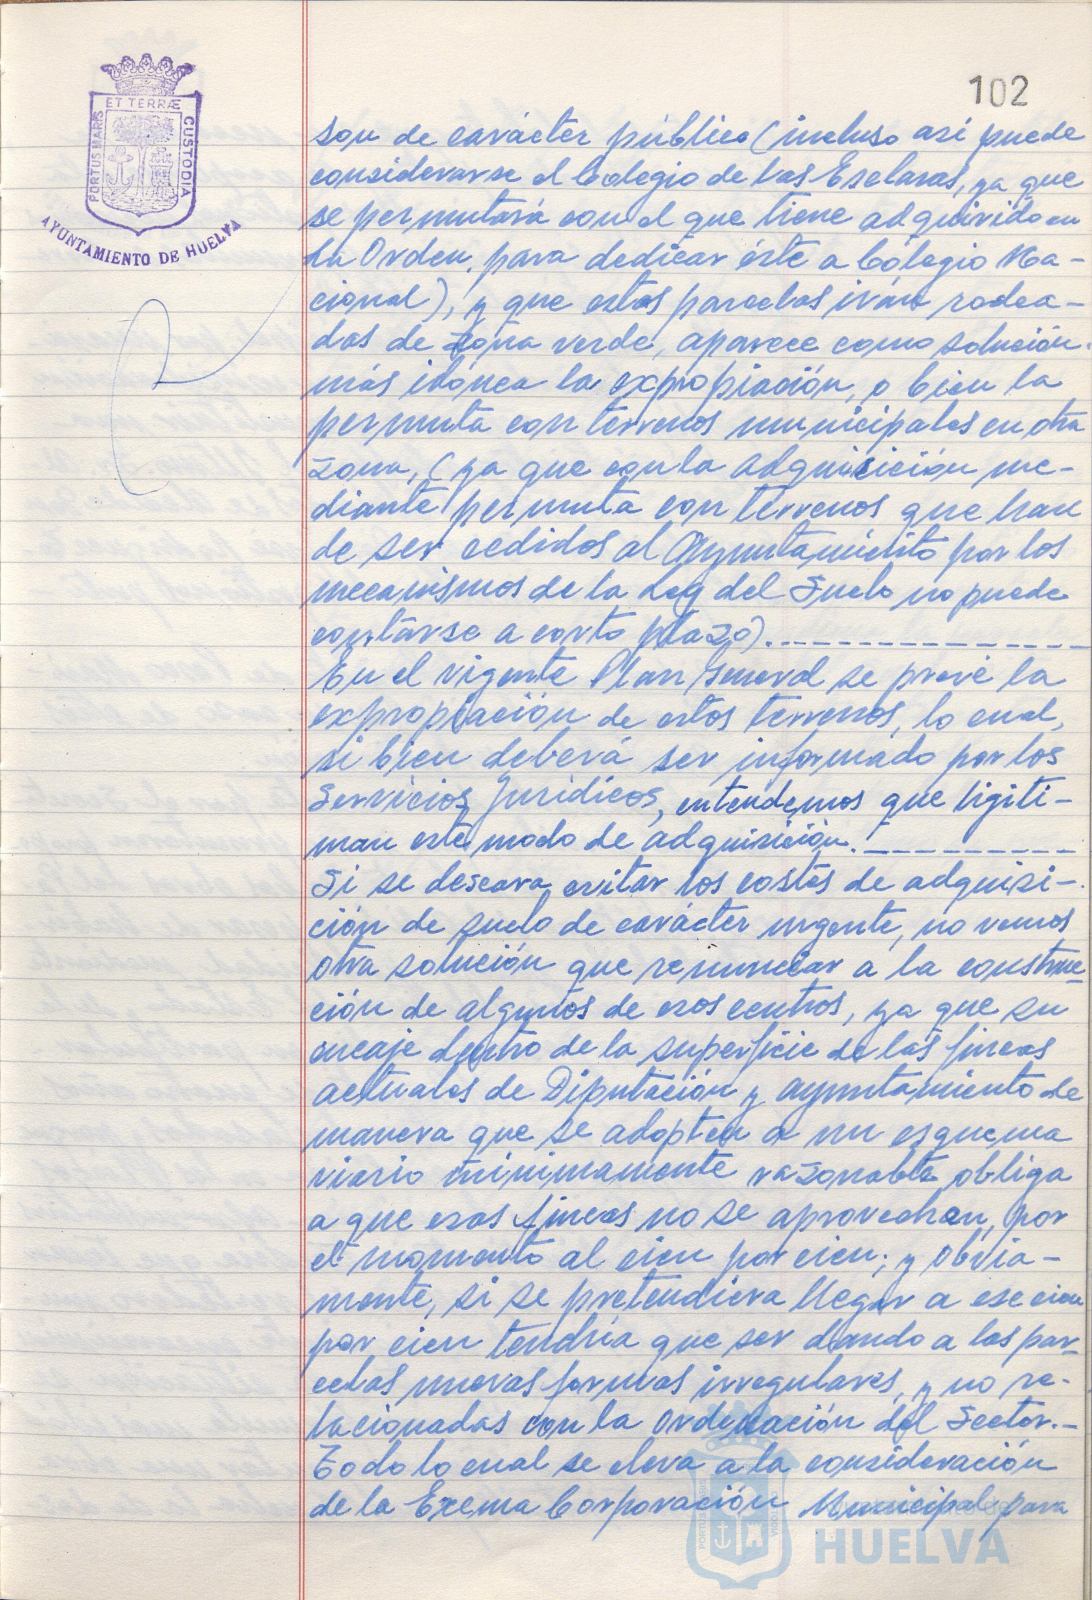 102
ET TERRÆ
PORTUS MARIS
CUSTODIA
AYUNTAMIENTO DE HUELVA
son de carácter público (incluso así puede
considerarse el Colegio de las Esclavas, ya que
se permutará con el que tiene adquirido en
La Orden, para dedicar éste a Colegio Na-
cional), y que estas parcelas irán rodea-
das de zona verde, aparece como solución
más idónea la expropiación, o bien la
permuta con terrenos municipales en otra
zona, (ya que con la adquisición me-
diante permuta con terrenos que han
de ser cedidos al Ayuntamiento por los
mecanismos de la Ley del Suelo no puede
contarse a corto plazo).
En el vigente Plan General se prevé la
expropiación de estos terrenos, lo cual,
si bien deberá ser informado por los
Servicios Jurídicos, entendemos que ligiti-
man este modo de adquisición.
Si se deseara evitar los costes de adquisi-
ción de suelo de carácter urgente, no vemos
otra solución que renunciar a la construc-
ción de algunos de esos centros, ya que su
encaje dentro de la superficie de las fincas
actuales de Diputación y Ayuntamiento de
manera que se adopten a un esquema
viario minimamente razonable obliga
a que esas fincas no se aprovechen, por
el momento al cien por cien; y obvia-
mente, si se pretendiera llegar a ese cien
por cien tendría que ser dando a las par-
celas nuevas formas irregulares, y no re-
lacionadas con la Ordenación del Sector.-
Todo lo cual se eleva a la consideración
de la Excma Corporación Municipal para
HUELVA